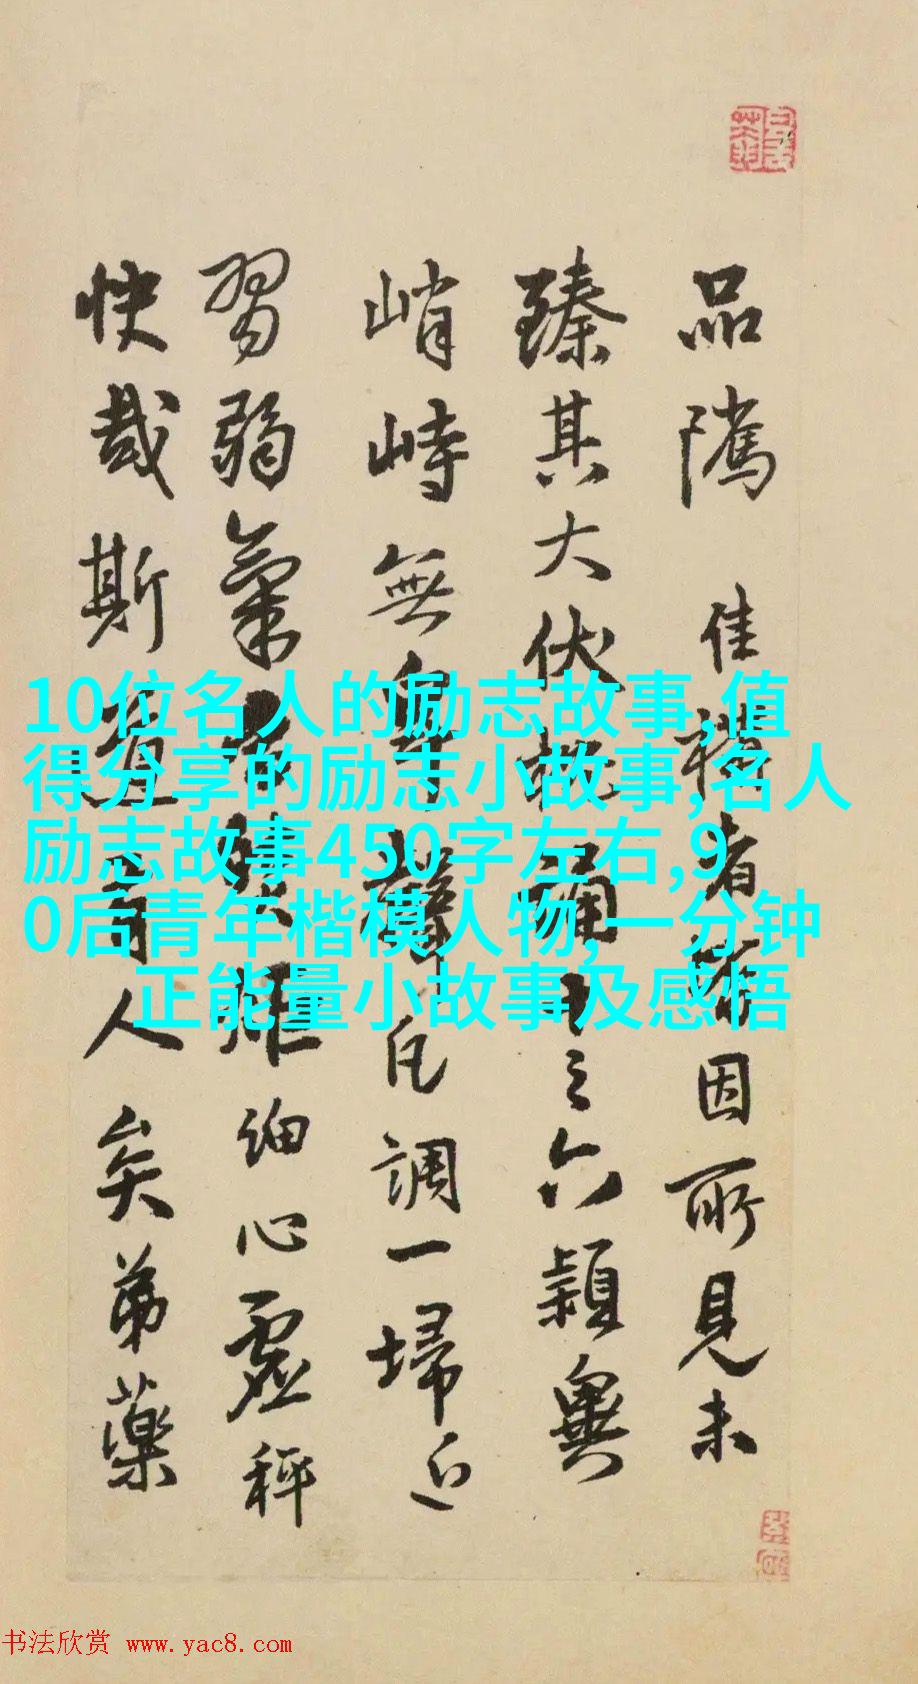 品隲佳者因所見未
臻其大伏之六穎與
峭峙無凡調一埽近
習弱氣細心虛秤
快哉斯人矣弟藥
10位名人的励志故事,值
得分享的励志小故事,名人
励志故事450字左右,9
0后青年楷模人物,一分钟
正能量小故事及感悟
书法欣赏 www.yac8.com